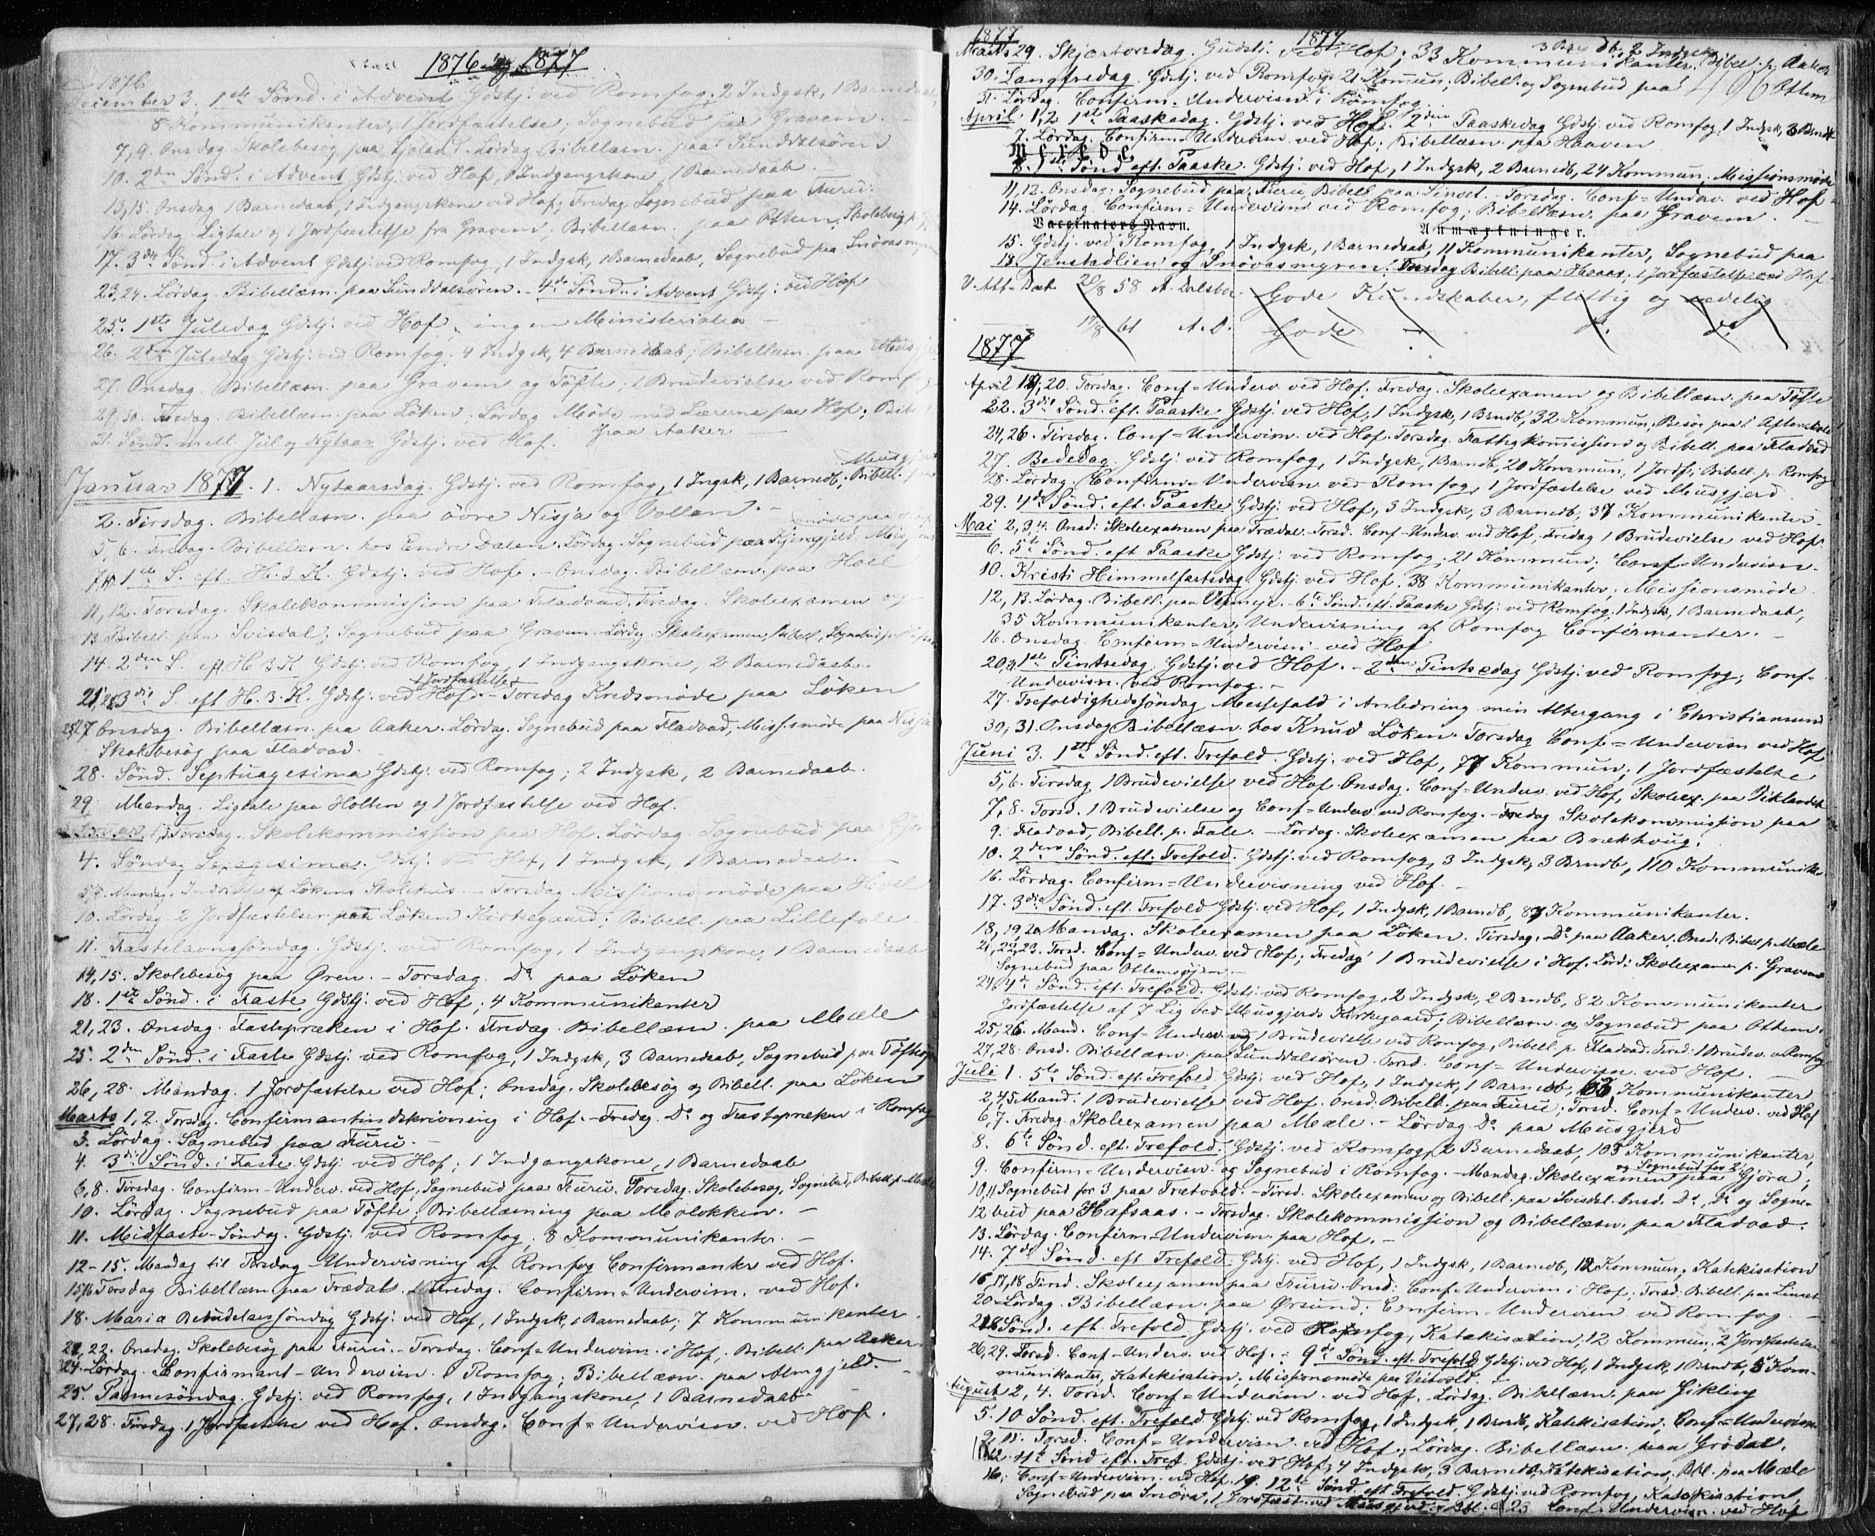 1876 og 1877
1876
December 3. 1ste Sönd. i Advent Gdstj. ved Romfog, 2 Indgsk, 1 Barnedaab
8 Kommunikanter, 1 Jordfæstelse. Sognebud paa Gravem.
7, 9. Onsdag Skolebesøg paa. Lördag Bibellæsn. paa Sunddalsören
10. 2den Sönd. i Advent Gdstj. ved Hof, 1 Indgangskone, 1 Barnedaab.
13, 15. Onsdag 1 Barnedaab, 1 Indgangskone ved Hof, Fredag Sognebud paa Furu.
16. Lördag Ligtale og 1 Jordfæstelse fra Gravem; Bibellæsn. paa Ottem, Skolebesøg p.
17. 3die Sönd. i Advent Gdstj. ved Romfog, 1 Indgsk, 1 Barnedaab, Sognebud paa Snövasmyren
23, 24. Lördag. Bibellæsn. paa Sunddalsören. - 4de Sönd. i Advent Gdstj. ved Hof
25. 1ste Juledag Gdstj. ved Hof, ingen Ministerialia -
26. 2den Juledag Gdstj. ved Romfog. 4 Indgsk, 4 Barnedaab; Bibellæsn. paa Musgjerd
27. Onsdag. Bibellæsn. paa Gravem og Töfte; 1 Brudevielse ved Romfog
29, 30. Fredag Bibellæsn. paa Löken. Lördag Möde med Lærerne paa Hof; Bibell.
paa Aaker -
31. Sönd. mell. Jul og Nytaar Gdstj. ved Hof.
Januar 1877. 1. Nytaarsdag. Gdstj. ved Romfog, 1 Ingsk, 1 Barnedb, Bibell. paa Musgjerd
2. Tirsdag. Bibellæsn. paa övre Nisja og Vollan. -
5, 6. Fredag. Bibellæsn. hos Endre Dalen. Lördag. Sognebud paa
7, 10. 1ste S. eft. H. 3 K. Gdstj. ved Hof. - Onsdag. Bibellæsn. paa Hoel
11, 12. Torsdag. Skolekommission paa Fladvad, Fredag. Skoleexamen og
13 Bibell. paa Svisdal; Sognebud paa Gravem - Lördag Skoleexamen, Bibell, Sognebud
14. 2den S. eft H. 3 K. Gdstj. ved Romfog, 1 Indgangskone, 2 Barnedaab.
1 Jordfæstelse
21, 25. 3die S. eft H. 3. K. Gdstj. ved Hof. - Torsdag Kredsmöde paa Löken
27 Onsdag. Bibellæsn. paa Aaker. Lördag. Sognebud paa Fladvad, Miss.möde paa Nisja
Skolebesög paa Fladvad -
28. Sönd. Septuagesima Gdstj. ved Romfog; 2 Indgsk, 2 Barnedaab.
29. Mandag. Ligtale paa Holten og 1 Jordfæstelse ved Hof.
Februar 1, Torsdag. Skolekommission paa Hof. Lördag. Sognebud paa
4. Söndag Sexagesima. Gdstj. ved Hof, 1 Indgsk, 1 Barnedaab. -
5, 8. Mandag. Indvielse af Lökens Skolehus. - Torsdag Missionsmöde paa Hoel
10. Lördag. 2 Jordfæstelser ved Löken Kirkegaard; Bibell. paa Lillefale.
11. Fastelavnssöndag Gdstj. ved Romfog, 1 Indgangskone, 1 Barnedaab
14, 15. Skolebesög paa Øren. - Torsdag. Do paa Löken
18. 1ste Sönd. i Faste Gdstj. ved Hof; 4 Kommunikanter
21, 23. Onsdag. Fastepræken i Hof. Fredag. Bibellæsn. paa Mæle
25. 2den Sönd. i Faste Gdstj. ved Romfog, 1 Indgsk, 3 Barnedaab, Sognebud paa Töfte
26, 28. Mandag. 1 Jordfæstelse ved Hof; Onsdag. Skolebesög og Bibell. paa Löken
Marts 1, 2. Torsdag. Confirmantindskrivning i Hof. - Fredag. Do og Fasteprækn i Romfog
3. Lördag. Sognebud paa Furu. -
4. 3die Sönd. i Faste Gdstj. ved Hof; 1 Indgangskone, 1 Barnedaab
6, 8. Tirsdag. Confirm-Underv. ved Hof, Sognebud paa Furu. Torsdag. Skolebesög, Sognebud, Bibell. p. Mæle
10. Lördag. Sognebud paa Töfte; Bibellæsning paa Molokken. -
11. Midfaste-Söndag. Gdstj. ved Romfog; 8 Kommunikanter. -
12-15. Mandag til Torsdag Undervisning af Romfog Confirmanter ved Hof.
15, 16 Torsdag Bibellæsn paa Trædal. Fredag. Confirm-Undervisn. ved Hof.
18. Maria Bebudelsessöndag Gdstj. ved Hof, 1 Indgsk, 1 Barnedaab; 7 Kommunikanter
21, 22. Onsdag Skolebesög paa Furu. - Torsdag. Conf-Undervisn. i Hof, Bibell. paa Aaker
24. Lördag. Confirmant-Undervisn. i Romfog; Bibellæsn. paa Almgjeld. -
25. Palmesöndag. Gdstj. ved Romfog, 1 Indgangskone, 1 Barnedaab -
27, 28. Tirsdag. 1 Jordfæstelse ved Hof. Onsdag. Conf-Undervisn. ved Hof.
1877 1877
Marts 29. Skjærtorsdag. Gudstj. ved Hof; 33 Kommunikanter, 3 Barnedb, 2 Indgsk, Bibell. p. Aaker
30. Langfredag. Gdstj. ved Romfog. 21 Kommun; Bibell. og Sognebud paa Ottem
496
31. Lördag. Confirm-Undervisn. i Romfog.
April 1, 2 1ste Paaskedag. Gdstj. ved Hof. 2den Paaskedag Gdstj ved Romfog, 1 Indgsk, 3 Barnedb
7. Lördag Confirm-Undervisn ved Hof; Bibellæsn. paa Haaven
Mærke
8. 1ste Sönd eft. Paaske Gdstj. ved Hof, 1 Indgsk, 2 Barnedb, 24 Kommun, Missionsmöde
11, 12. Onsdag: Sognebud paa Furu, Bibell. paa Linset - Torsdag. Conf-Underv. ved Hof
14. Lördag. Confirm-Undervisn ved Romfog; Bibellæsn. paa Gravem. -
Vaccinators Navn. Anmærkninger.
15. Gdstj. ved Romfog, 1 Indgsk, 1 Barnedaab, 11 Kommunikanter, Sognebud paa
18. Jenstadlien og Snövasmyren. Onsdag Bibell. paa Haaas, 1 Jordfæstelse ved Hof.
V. Att. Dat 20/8 58 A. Dalsbø Gode Kundskaber, flittig og sædelig
17/8 61 A. D. Gode - d. do
1877
April 19, 20. Torsdag. Conf-Underv. ved Hof, Fredag. Skoleexamen og Bibellæsn. paa Töfte
22. 3die Sönd. eft. Paaske Gdstj. ved Hof, 1 Indgsk, 1 Brndb, 32 Kommun, Besög paa Aftenskole
24, 26. Tirsdag. Conf-Undervisn. ved Hof. Torsdag. Fattigkommission og Bibell. paa Fladvad
27. Bededag. Gdstj. ved Romfog, 1 Indgsk, 1 Barndb, 20 Kommun, 1 Jordf; Bibell. p. Romfog
28. Lördag. Confirm-Undervisn ved Romfog, 1 Jordfæstelse ved Musgjerd.
29. 4de Sönd. eft. Paaske Gdstj. ved Hof, 5 Indgsk, 3 Barnedb, 37 Kommunikanter -
Mai 2, 3, 4. Onsd: Skoleexamen paa Trædal. Torsd. Conf-Underv. ved Hof, Fredag 1 Brudevielse ved Hof.
6. 5te Sönd. eft Paaske Gdstj. ved Romfog, 21 Kommun; Conf-Undervisn.
10. Kristi Himmelfartsdag. Gdstj. ved Hof. 38 Kommunikanter; Missionsmöde
12, 13. Lördag. Bibell. paa - 6te Sönd. eft. Paaske Gdstj. ved Romfog. 1 Indgsk, 1 Barnedaab,
35 Kommunikanter, Undervisning af Romfog Confirmanter. -
16. Onsdag. Confirm-Undervisn. ved Hof
20, 21. 1ste Pintsedag. Gdstj. ved Hof. - 2den Pintsedag Gdstj ved Romfog; Conf-
Undervisn. ved Romfog. -
27. Trefoldighedssöndag Messefald i Anledning min Altergang i Christiansund
30, 31. Onsdag Bibellæsn. hos Knud Löken. Torsdag Conf-Undervisn ved Hof
Juni 3. 1ste Sönd. eft. Trefold. Gdstj. ved Hof, 77 Kommun; 1 Jordfæstelse
5, 6. Tirsdag. 1 Brudevielse ved Hof. Onsdag. Conf-Underv. ved Hof, Skoleex. paa Viklandet
7, 8. Torsd. 1 Brudevielse og Conf-Underv ved Romfog. - Fredag Skolekommission paa
9. Fladvad, Bibell. p. Fale. - Lördag. Skoleexamen paa Brækhoug.
10. 2den Sönd. eft. Trefold. Gdstj. ved Romfog, 3 Indgsk, 3 Brndb, 110 Kommunikan
16. Lördag. Confirm-Undervisning ved Hof. -
17. 3die Sönd. eft. Trefold Gdstj. ved Hof, 1 Indgsk, 1 Barndb, 87 Kommunikanter.
18, 19, 20 Mandag. Skoleexamen paa Löken. Tirsdag. Do paa Aaker. Onsd. Bibel p. Mæle
21, 22, 23. Torsd. Conf-Underv. ved Hof; Fredag 1 Brudevielse i Hof. Lörd: Skoleexamen p. Gravem
Sognebud paa Ottemsöyen -
24, 4de Sönd. eft. Trefold. Gdstj. ved Romfog, 2 Indgsk, 2 Barndb, 82 Kommunikanter
Jordfæstelse af 7 Lig ved Musgjerds Kirkegaard; Bibellæsn. og Sognebud paa Ottem.
25, 26. Mand. Conf-Underv og 1 Brudevielse ved Romfog, Bibell. p. Fladvad. Tirsd. 1 Brudev. v. Romfog
27, 28. Onsd. Bibellæsn. paa Sunddalsören. Torsd. Conf-Undervisn. ved Hof. -
Juli 1. 5te Sönd. eft. Trefold Gdstj. ved Hof, 1 Indgsk, 1 Barnedb, 63 Kommunikanter
2, 4, 5 Mand. 1 Brudevielse ved Hof. Onsd. Bibell. paa Furu; Torsd. Conf-Underv. ved Hof
6, 7. Fredag. Skoleexamen paa Mæle. - Lördag. Do. paa Musgjerd
8. 6te Sönd. eft. Trefold. Gdstj. ved Romfog, 2 Barnedaab, 103 Kommunikanter,
og Sognebud for 2
9. Confirm-Undervisn. og Sognebud i Romfog. - Mandag. Skoleexamen paa Gjøra;
10, 11 Sognebud for 3 paa Trætvold. - Tirsd. Skoleexamen og Bibell. paa Svisdal. Onsd. Do, Do og Sogne-
12 bud paa Hafsaas. - Torsdag. Skolekommission og Bibellæsn. paa Fladvad.
13. Lördag. Confirm-Undervisn. paa Hof. -
14. 7de Sönd. eft Trefold. Gdstj. ved Hof, 1 Indgsk, 1 Barnedb, 12 Kommun, Katekisation
16, 17, 18 Tirsd. Skoleexamen paa Furu. Onsd: Conf-Undervisn i Hof; Torsd: Bibell. paa Linset
20. Lördag. Bibellæsn. paa Ørsund; Confirm-Undervisn ved Romfog. -
21 8 Sönd. eft. Trefold Gdstj. ved Romfog, Katekisation; 12 Kommun, 2 Jordfæstelser
26, 29. Torsd. Conf-Underv. ved Hof. - 9de Sönd. eft. Trefold Gdstj. ved Hof, 1 Indgsk, 1 Brndb, 5 Kom-
munikanter, Katekisation. Missionsmöte paa Veitvold. -
August 2, 4. Torsd. Conf-Undervisn. ved Hof. - Lördag. Bibellæsn. paa Gikling
5. 10 Sönd. eft. Trefold Gdstj. ved Romfog, 1 Indgsk, 1 Brndb, Katekisation; Conf-Undervisn.
9, 11. Torsd. Conf-Undervisn. ved Hof.; Lördag. Bibellæsn. paa Grödal,
12. 11te Sönd eft. Tref. Gdstj. ved Hof, 4 Indgsk, 3 Barnedb, Katekisation, Bbl. paa Mæle
16. Conf-Undervisn. ved Hof. 19. 12te Sönd. eft. Trefold. Gdstj. ved Romfog, Katekisation,
Sognebud paa Snöva, 1 Jordfæst. ved Musgjerd og Bbl. 23 Conf-Undervisn. ved Hof